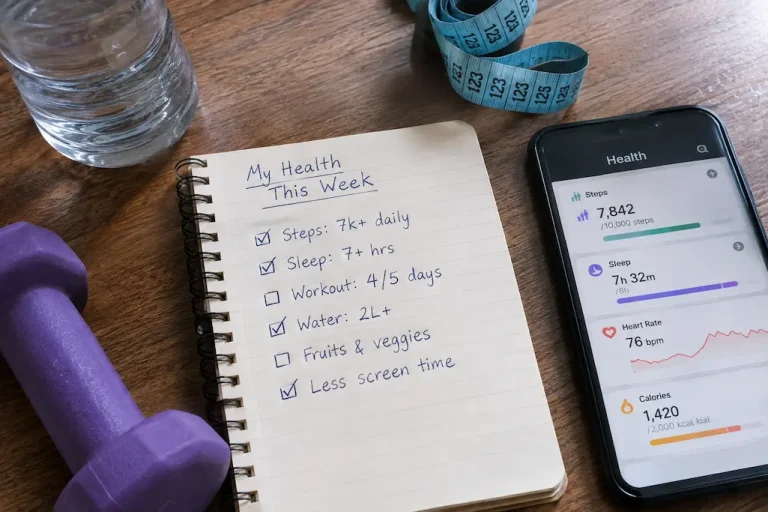 My Health
This Week
Steps: 7k+ daily
Sleep: 7+ hrs
Workout: 4/5 days
Water: 2L+
Fruits & veggies
Less screen time
123 123 123
123 123 123 125 123
Health
Steps
7,842
/10,000 steps
Sleep
7h 32m
/8h
Heart Rate
76 bpm
Calories
1,420
/2,000 kcal